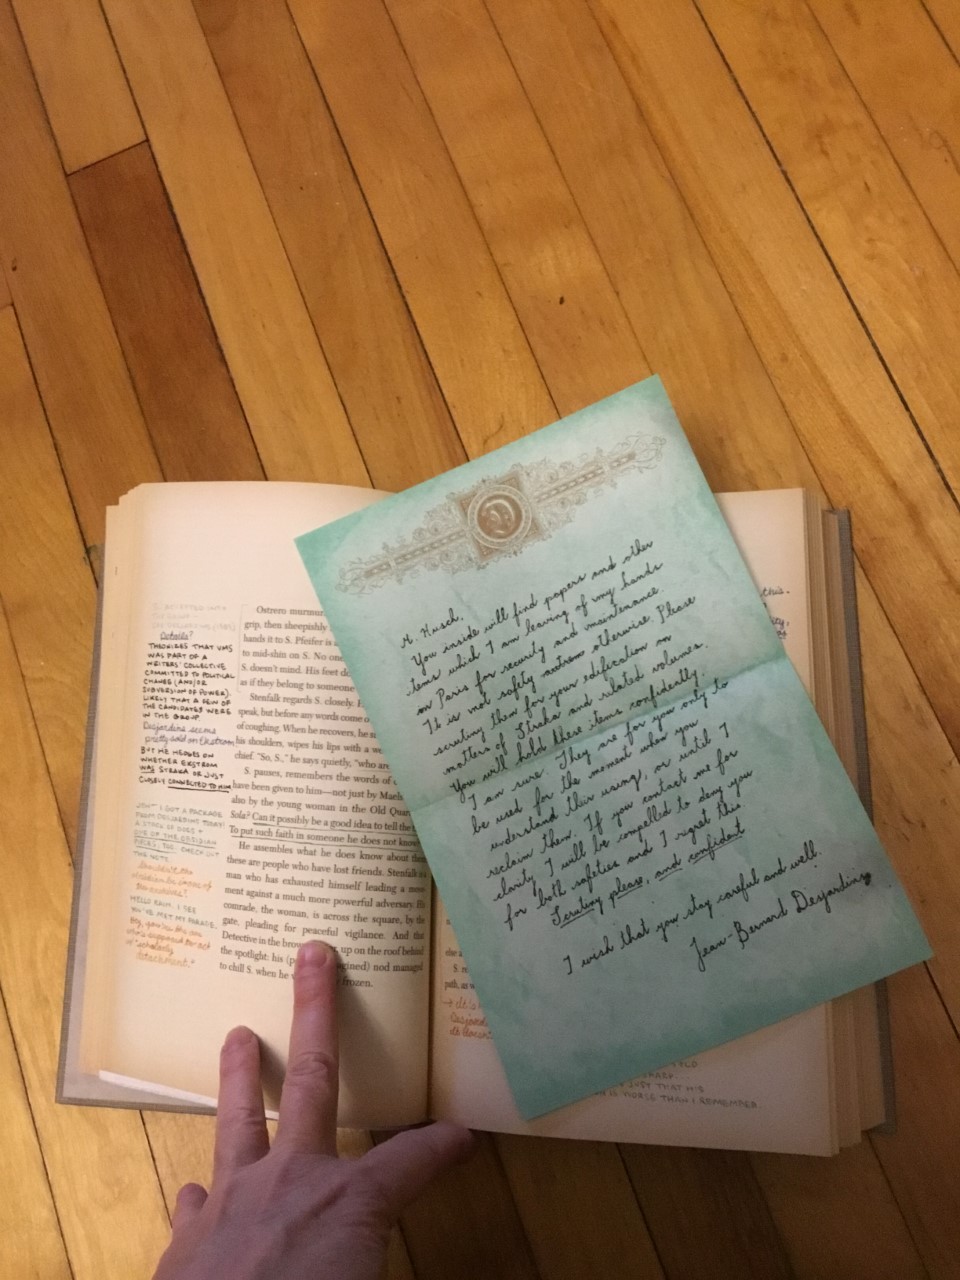 Details?
THEORIZES THAT VMS
WAS PART OF A
WRITERS' COLLECTIVE
COMMITTED TO POLITICAL
CHANGE (AND/OR
SUBVERSION OF POWER).
LIKELY THAT A FEW OF
THE CANDIDATES WERE
IN THE GROUP.
Desjardins seems
pretty sold on Ekstrom
BUT HE HEDGES ON
WHETHER EKSTROM
WAS STRAKA OR JUST
CLOSELY CONNECTED TO HIM
I GOT A PACKAGE
FROM DESJARDINS TODAY:
A STACK OF DOCS +
ONE OF THE OBSIDIAN
PIECES, TOO. CHECK OUT
THE NOTE.
Shouldn't the
obsidian be in one of
the archives?
HELLO RAIN, I SEE
YOU'VE MET MY PARADE.
Hey, you're the one
who's supposed to act
w/ "scholarly
detachment."
Ostrero murmur
grip, then sheepishly
hands it to S. Pfeifer is
to mid-shin on S. No one
S. doesn't mind. His feet do
as if they belong to someone
Stenfalk regards S. closely. H
speak, but before any words come o
of coughing. When he recovers, he
his shoulders, wipes his lips with a
chief. "So, S.," he says quietly, "who are
S. pauses, remembers the words of
have been given to him—not just by Maels
also by the young woman in the Old Quar
Sola? Can it possibly be a good idea to tell the
To put such faith in someone he does not know
He assembles what he does know about the
these are people who have lost friends. Stenfalk
man who has exhausted himself leading a move
ment against a much more powerful adversary. H
comrade, the woman, is across the square, by the
gate, pleading for peaceful vigilance. And the
Detective in the brow up on the roof behind
the spotlight: his (p gined) nod managed
to chill S. when he w frozen.
M. Husch,
You inside will find papers and other
items which I am leaving of my hands
on Paris for security and maintenance.
It is not safety extrem otherwise. Please
scrutiny them for your edification on
matters of Straka and related volumes.
You will hold these items confidently.
I am sure. They are for you only to
be used for the moment when you
understand this using, or until I
reclaim them. If you contact me for
clarity I will be compelled to deny you
for both safeties and I regret this.
Scrutiny please, and confident
I wish that you stay careful and well.
Jean-Bernard Desjardins
this.
path, as w
It's
Desjard
JUST THAT HIS
IS WORSE THAN I REMEMBER